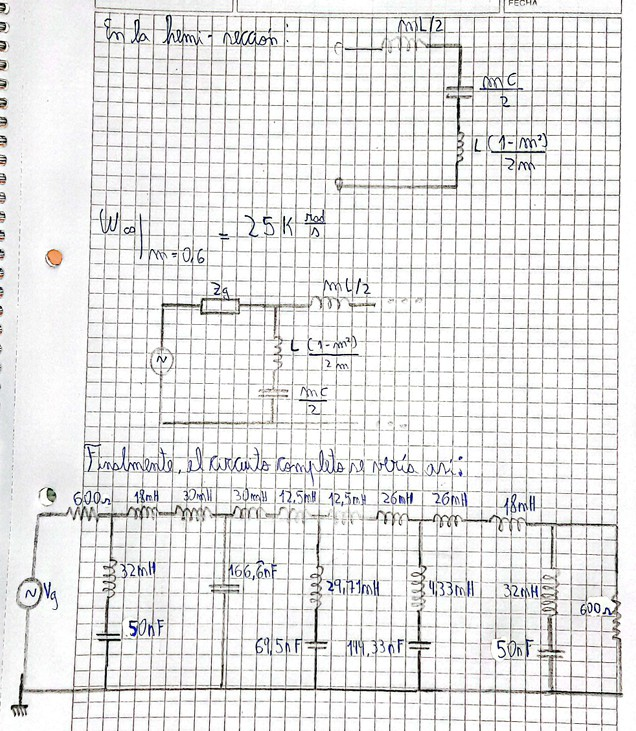 FECHA
En la hemi-sección:
mL/2
mC/2
L (1-m²)/2m
W∞|m=0,6 = 25 K rad/s
Zg
mL/2
L (1-m²)/2m
mC/2
Finalmente, el circuito completo se vería así:
600Ω 18mH 30mH 30mH 12,5mH 12,5mH 26mH 26mH 18mH
Vg 32mH 166,6nF 29,71mH 4,33mH 32mH 600Ω
50nF 69,5nF 144,33nF 50nF